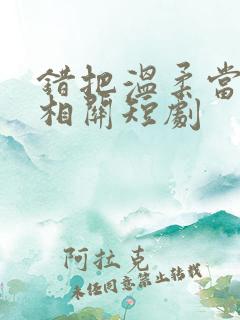 錯把溫柔當
相關短劇
阿拉克
未经同意禁止转载